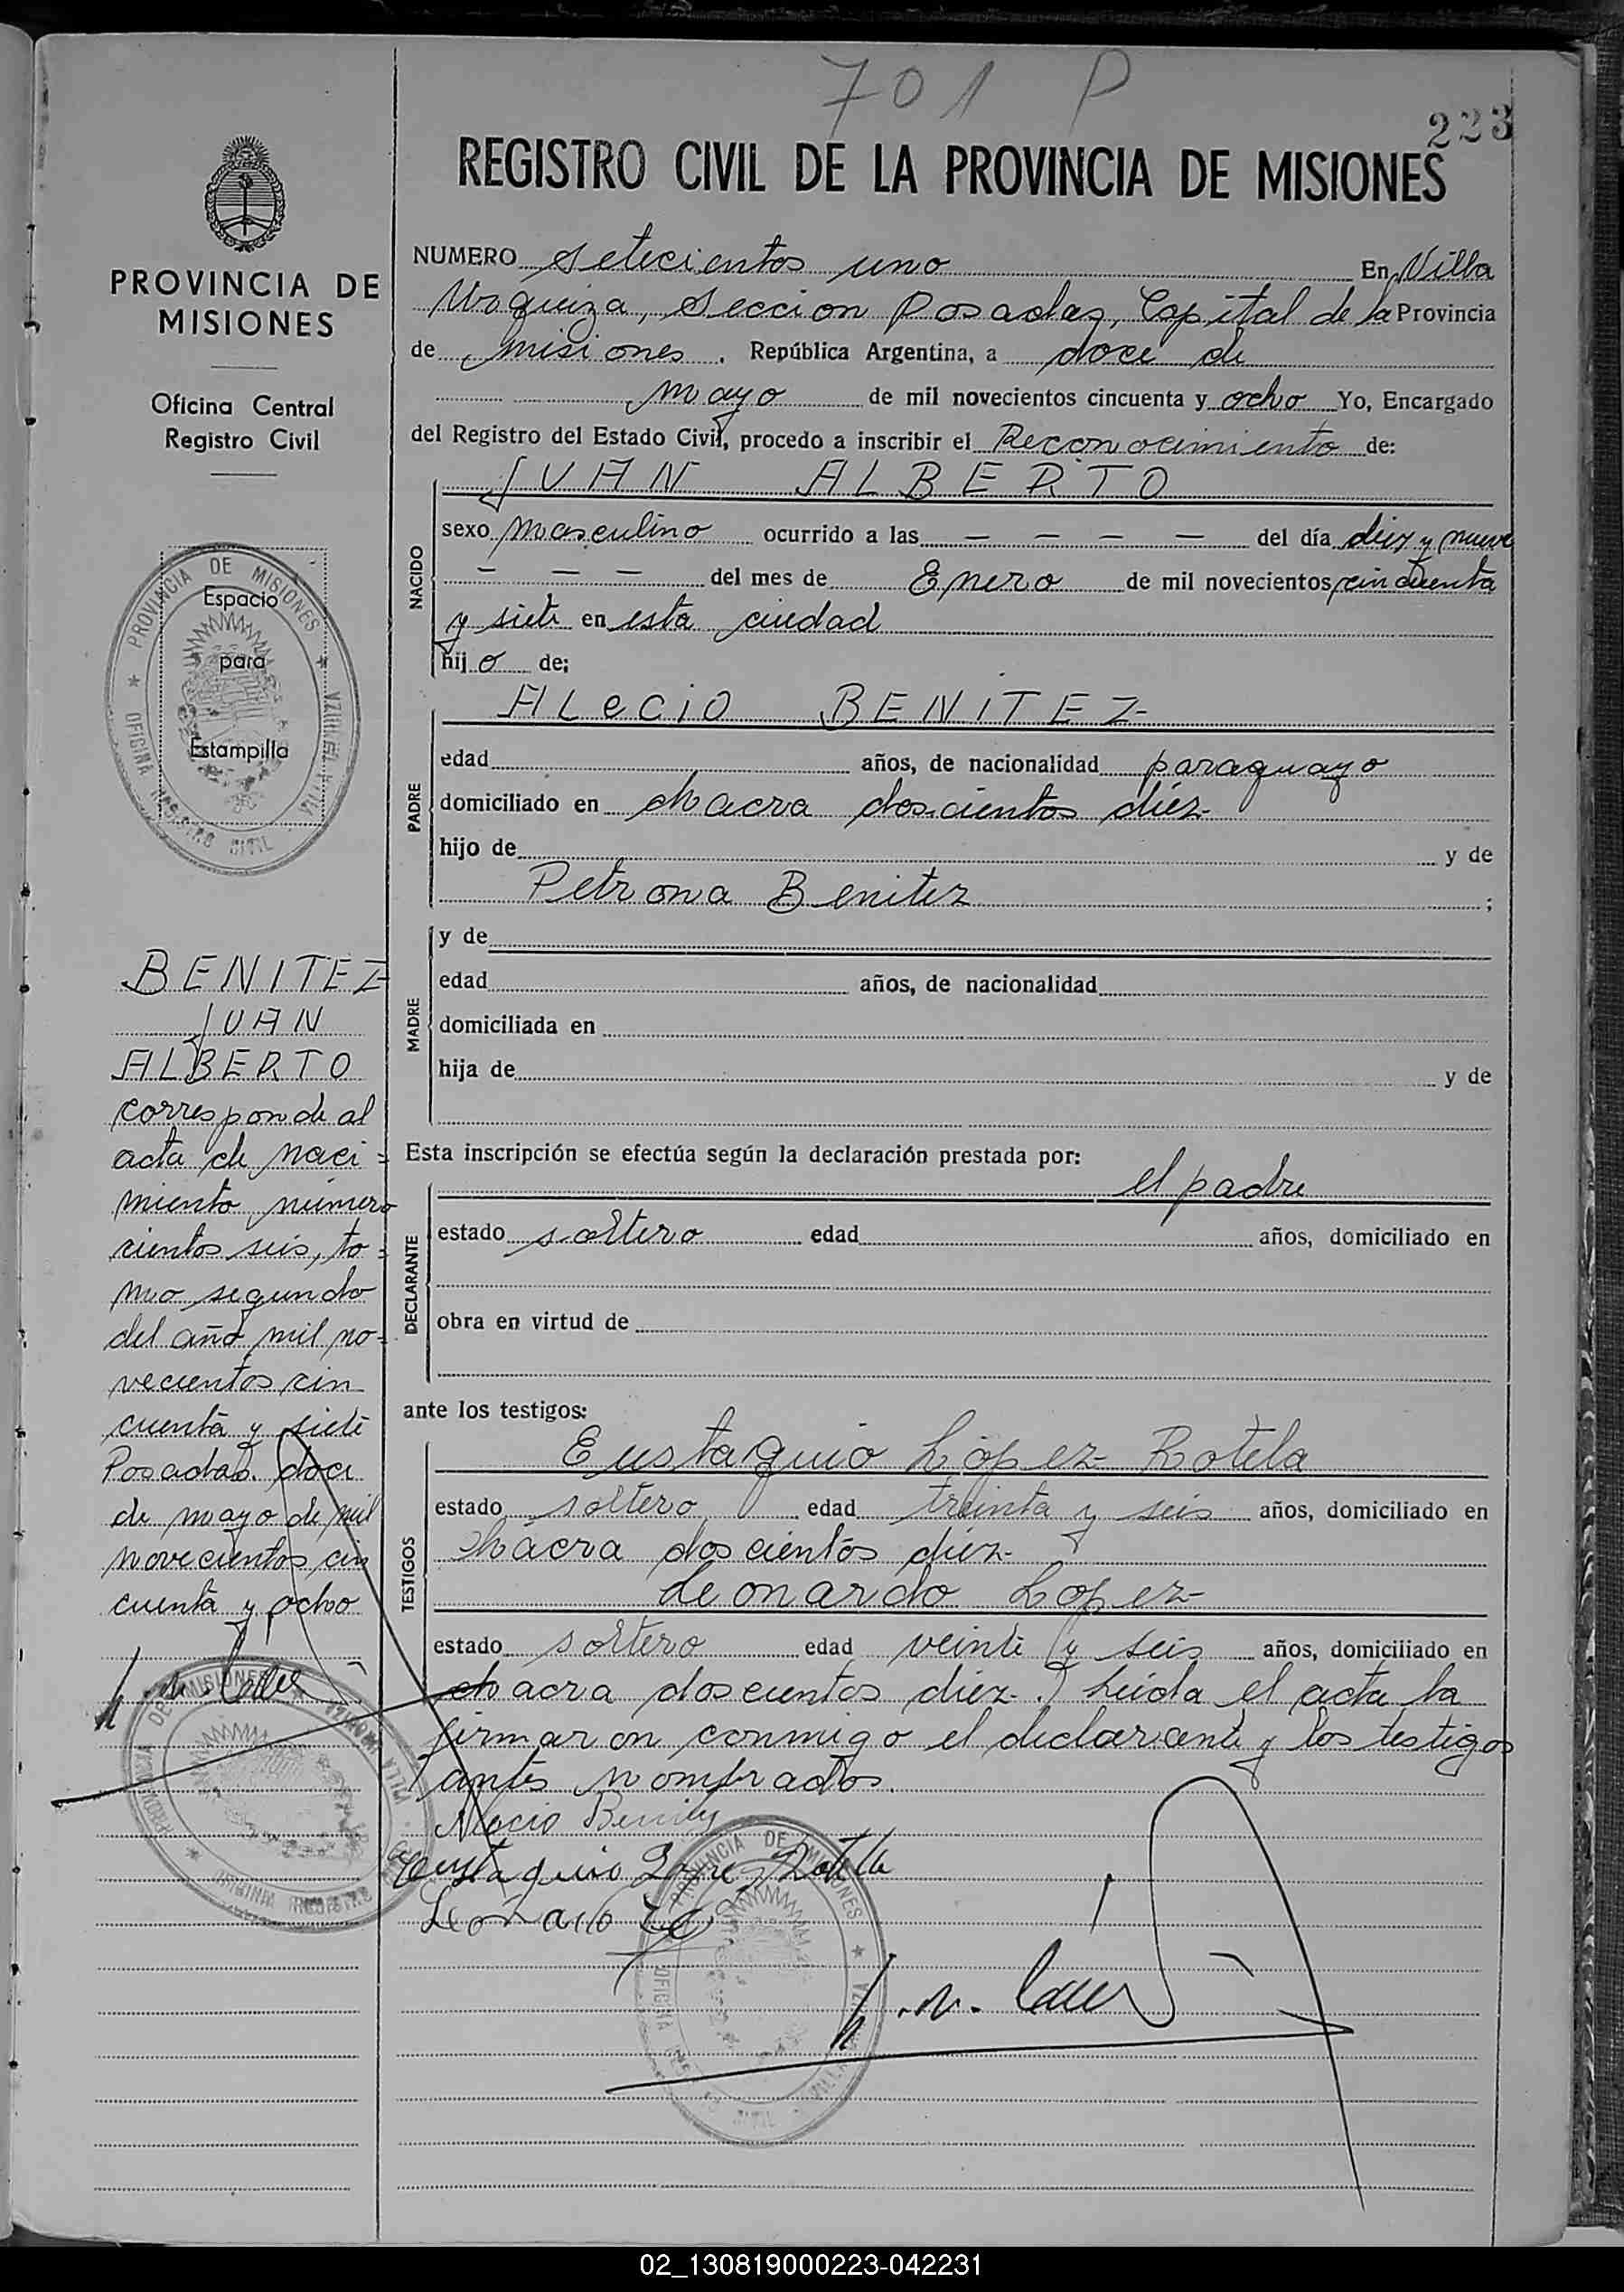 701 P
223
REGISTRO CIVIL DE LA PROVINCIA DE MISIONES
PROVINCIA DE
MISIONES
Oficina Central
Registro Civil
PROVINCIA DE MISIONES
Espacio
para
Estampilla
OFICINA REGISTRO CIVIL
BENITEZ
JUAN
ALBERTO
corresponde al
acta de naci=
miento número
cientos seis, to=
mo segundo
del año mil no=
vecientos cin
cuenta y siete
Posadas. doce
de mayo de mil
novecientos cin
cuenta y ocho
NUMERO setecientos uno En Villa
Urquiza, Seccion Posadas, Capital de la Provincia
de misiones. República Argentina, a doce de
mayo de mil novecientos cincuenta y ocho Yo, Encargado
del Registro del Estado Civil, procedo a inscribir el Reconocimiento de:
JUAN ALBERTO
NACIDO
sexo masculino ocurrido a las — — — — del día diez y nueve
— — — del mes de Enero de mil novecientos cincuenta
y siete en esta ciudad
hijo de;
ALeCiO BENiTEZ-
PADRE
edad años, de nacionalidad paraguayo
domiciliado en chacra doscientos diez-
hijo de y de
Petrona Benitez ;
MADRE
y de
edad años, de nacionalidad
domiciliada en
hija de y de
Esta inscripción se efectúa según la declaración prestada por:
el padre
DECLARANTE
estado soltero edad años, domiciliado en
obra en virtud de
ante los testigos:
TESTIGOS
Eustaquio López Rotela
estado soltero edad treinta y seis años, domiciliado en
chacra doscientos diez-
Leonardo Lopez-
estado soltero edad veinte y seis años, domiciliado en
chacra doscientos diez-. Leida el acta la
firmaron conmigo el declarante y los testigos
antes nombrados.
Alecio Benitez
Eustaquio Lopez Rotela
PROVINCIA DE MISIONES
02_130819000223-042231